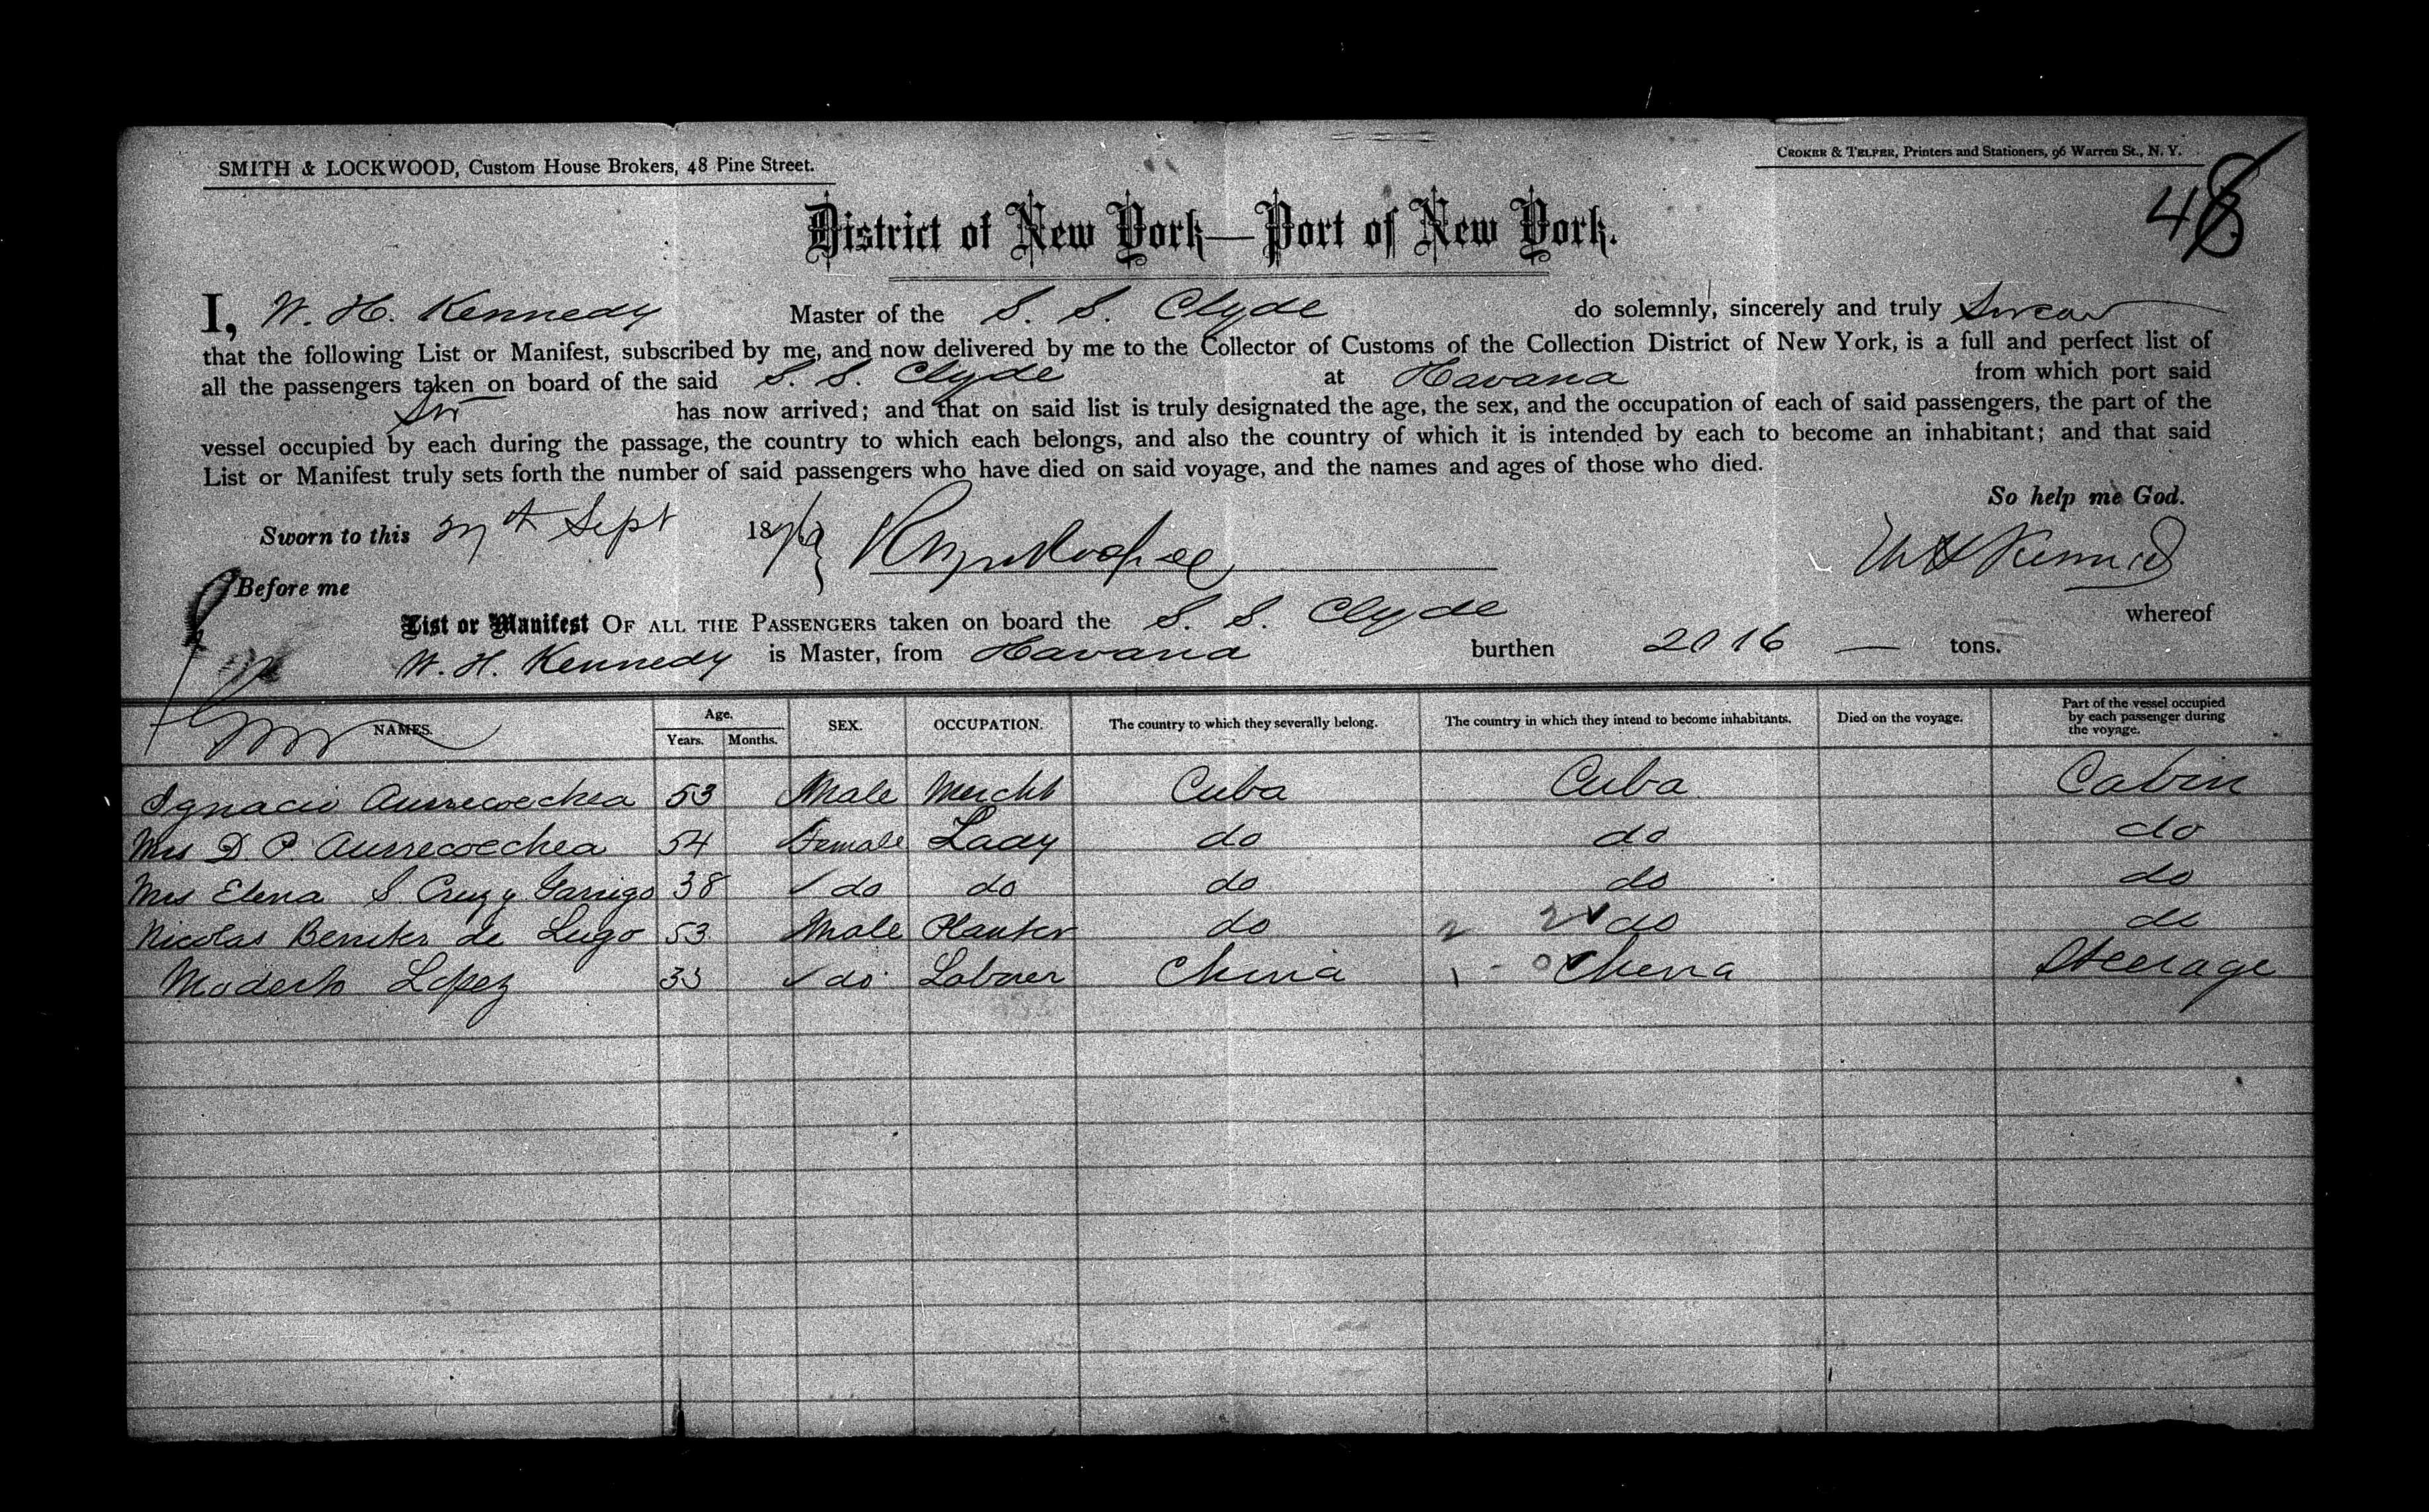 SMITH & LOCKWOOD, Custom House Brokers, 48 Pine Street.
CROKER & TELFER, Printers and Stationers, 96 Warren St., N. Y.
48
District of New York—Port of New York.
I, W. H. Kennedy Master of the S. S. Clyde do solemnly, sincerely and truly Swear
that the following List or Manifest, subscribed by me, and now delivered by me to the Collector of Customs of the Collection District of New York, is a full and perfect list of
all the passengers taken on board of the said S. S. Clyde at Havana from which port said
Str has now arrived; and that on said list is truly designated the age, the sex, and the occupation of each of said passengers, the part of the
vessel occupied by each during the passage, the country to which each belongs, and also the country of which it is intended by each to become an inhabitant; and that said
List or Manifest truly sets forth the number of said passengers who have died on said voyage, and the names and ages of those who died.
So help me God.
Sworn to this Sept 1879
Before me
List or Manifest OF ALL THE PASSENGERS taken on board the S. S. Clyde whereof
W. H. Kennedy is Master, from Havana burthen 2016 — tons.
NAMES. Age. Years. Months. SEX. OCCUPATION. The country to which they severally belong. The country in which they intend to become inhabitants. Died on the voyage. Part of the vessel occupied by each passenger during the voyage.
Ignacio Aurrecoechea 53 Male Mercht Cuba Cuba Cabin
Mrs D. P. Aurrecoechea 54 Female Lady do do do
Mrs Elena S. Cruz y Garrigo 38 do do do do do
Nicolas Benites de Lugo 53 Male Planter do do do
Modesto Lopez 33 do Laborer China China Steerage